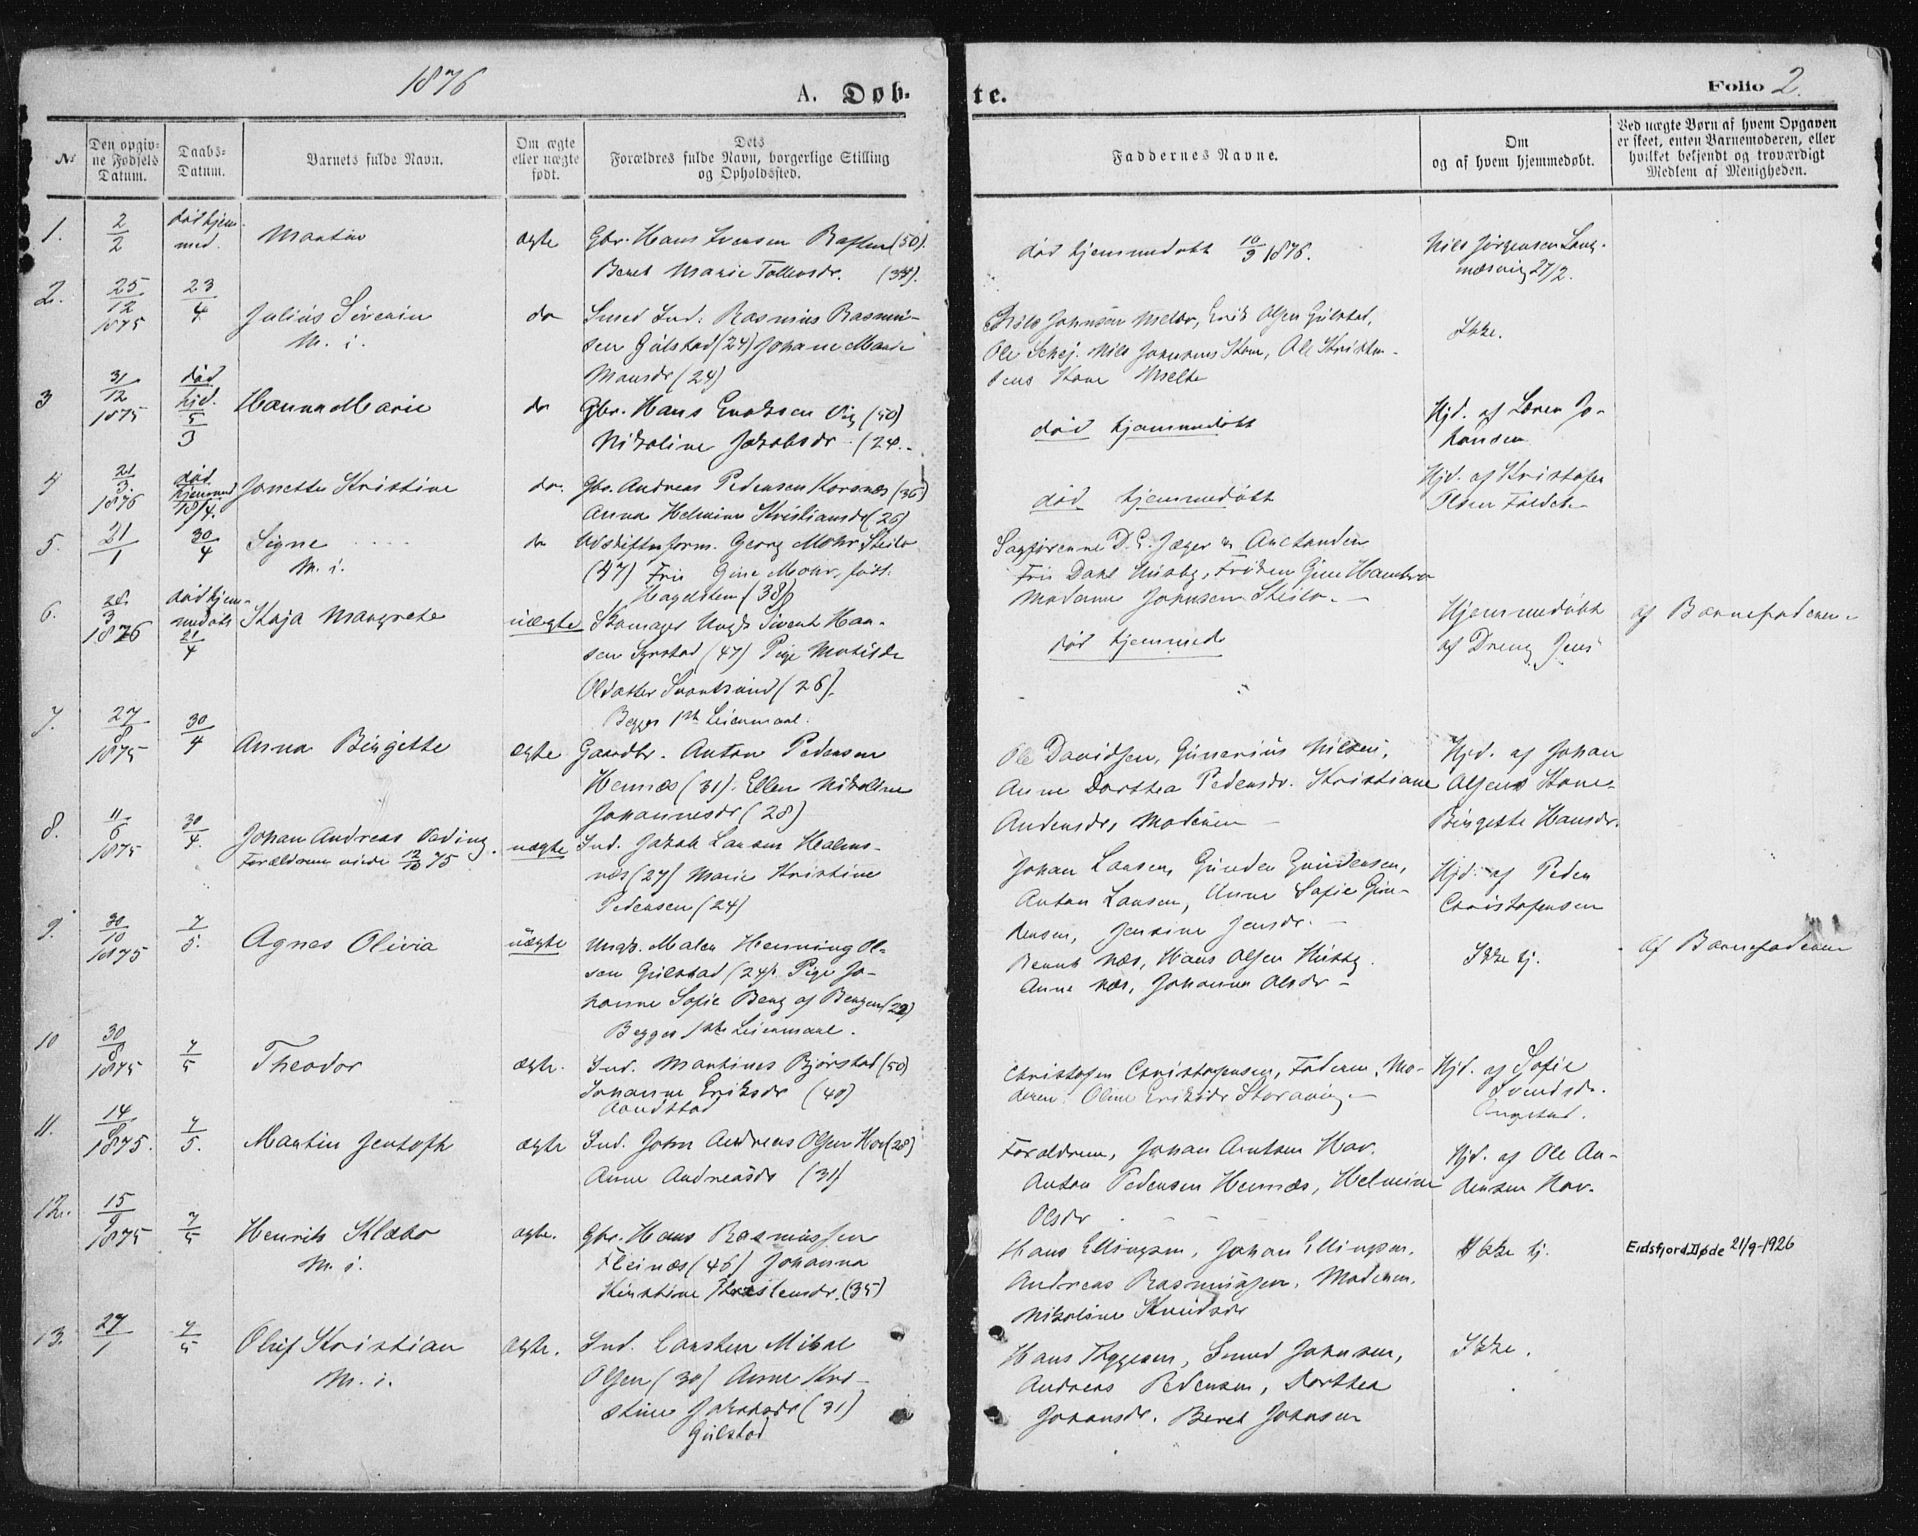 1876
A. Døb-
te.
Folio 2.
№
Den opgiv-
ne Fødsels
Datum.
Daabs-
Datum.
Barnets fulde Navn.
Om ægte
eller uægte
født.
Dets
Forældres fulde Navn, borgerlige Stilling
og Opholdssted.
Faddernes Navne.
Om
og af hvem hjemmedøbt.
Ved uægte Børn af hvem Opgaven
er skeet, enten Barnemoderen, eller
hvilket bekjendt og troværdigt
Medlem af Menigheden.
1.
2/2
død hjem-
med.
Martin
ægte
Gbr. Hans Iversen
Beret Marie Tollevsdr. (34).
død hjemmedøbt 10/3 1876.
Nils Jørgensen Lang-
næsvig 27/2.
2.
25/12
1875
23/4
Julius Severin
M. i.
do
Smed Ind: Rasmus Rasmu-
sen Gulstad (24) Johane Marie
Monsdr (24)
Johnsen Melbo, Erik Olsen Gulstad,
Ole Nils Johnsens Kone, Ole Kristen-
sens Kone Melbo
Ikke.
3
31/12
1875
død
hjd.
5/3
Hanna Marie
do
Gbr. Hans Eriksen Vig (50)
Nikoline Jakobsdr. (24.
død hjemmedøbt
Hjd. af Søren Jo-
hansen
4
21/3.
1876
død
hjemmed
18/4.
Jonette Kristine
do.
Gbr. Andreas Pedersen Korsnæs (36)
Anna Helmine Kristiansdr (26)
død hjemmedøbt
Hjd. af Kristofer
Olsen
5.
21/1
30/4
Signe
M. i.
do
Udskiftnform. Georg Mohr Steilo
(47) Fru Gine Mohr, født
Hagelsteen (38)
Sagførerne D. E. Jæger &
Fru Dahl Husby, Frøken Gine
Moderne Johnsen Steilo. —
6.
28/3
1876
død hjem-
medøbt
21/4
Kaja Margrete
uægte
Skomager Ungk Sivert Han-
sen (47) Pige Matilde
Olsdatter Svartsund (26).
Begges 1ste Leiermaal.
død hjemmed
Hjemmedøbt
af Dreng Jens
af Barnefaderen
7.
27/8
1875
30/4
Anna Birgitte
ægte
Gaardbr. Anton Pedersen
Hennæs (31). Ellen Nikoline
Johannesdr (28)
Ole Davidsen, Gunerius Nilsen,
Anne Dorthea Pedersdr. Kristiane
Andersdr, Moderen —
Hjd. af Johan
Olsens Kone
Birgitte Hansdr.
8.
11/6
1875
30/4.
Johan Andreas
Forældrene viede 12/12 75.
uægte
Ind. Jakob Larsen
næs (27) Marie Kristine
Pedersen (24)
Johan Larsen, Gunder Gundersen,
Anton Larsen, Anne Sofie Gun-
dersen, Jensine Jensdr. —
Hjd. af Peder
Christofersen
9.
30/10
1875
7/5.
Agnes Olivia
uægte
Ungk. Maler Henning Ol-
sen Gulstad (24). Pige Jo-
hanne Sofie Berg af Bergen (22)
Begges 1ste Leiermaal.
Bernt Næs, Hans Olsen Husby.
Anne Næs, Johanna Olsdr —
Ikke hj.
af Barnefaderen
10
30/8
1875
7/5
Theodor
ægte.
Ind. Martinus Bjørstad (50)
Johanne Eriksdr (40)
Christofer Christofersen, Faderen, Mo-
deren. Oline Eriksdr —
Hjd. af Sofie
11.
14/8
1875.
7/5.
Martin Jentoft
ægte
Ind. John Andreas Olsen Hov (28)
Anne Andreasdr (31)
Forældrene, Johan Arntsen Hov.
Anton Pedersen Hennæs, Helmine
Olsdr
Hjd. af Ole An-
dersen Hov.
12.
15/9
1875
7/5
Henrik Klæbo
M. i.
ægte.
Gbr. Hans Rasmussen
Fleinæs (46) Johanna
Kirstine Kristensdr. (35)
Hans Ellingsen, Johan Ellingsen.
Andreas Rasmussen. Moderen.
Nikoline Knudsdr
Ikke hj.
Eidsfjord. Døde 21/9-1926
13.
27/1
7/5
Oluf Kristian
M. i.
ægte.
Ind. Carsten Mikal
Olsen (30) Anne Kri-
stine Jakobsdr (31)
Gulstad
Hans Thygesen, Smed Johnsen,
Andreas Pedersen, Dorthea
Johansdr. Beret Johnsen
Ikke.